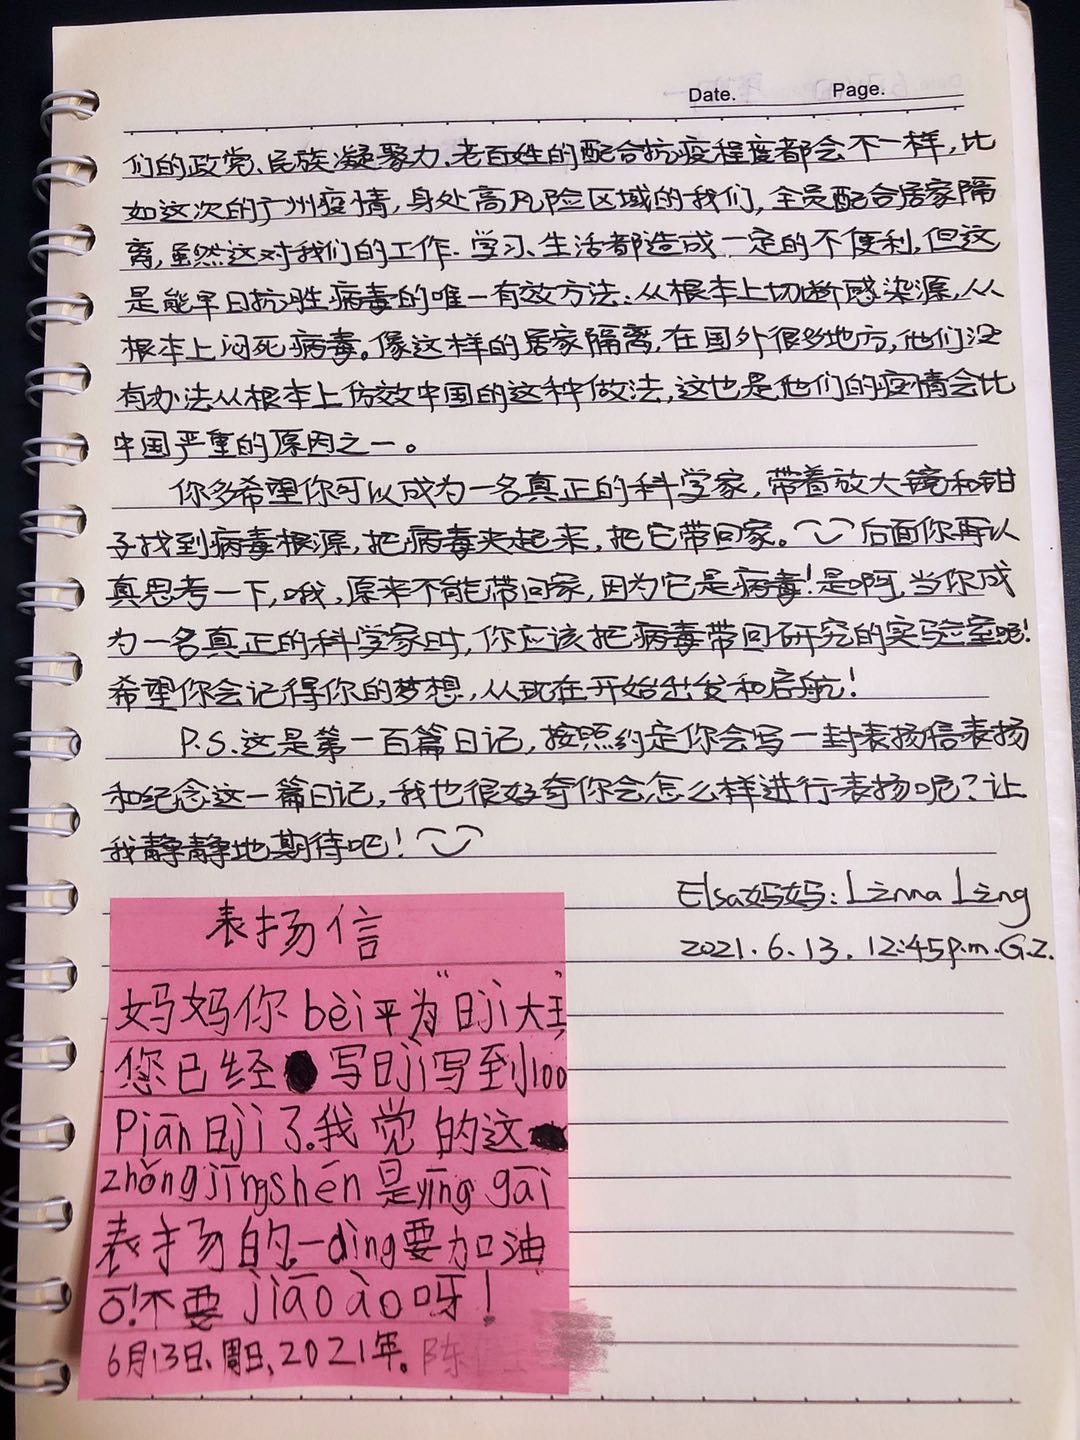 Date. Page.
们的政党、民族凝聚力、老百姓的配合抗疫程度都会不一样，比
如这次的广州疫情，身处高风险区域的我们，全员配合居家隔
离，虽然这对我们的工作、学习、生活都造成一定的不便利，但这
是能早日抗胜病毒的唯一有效方法：从根本上切断感染源，从
根本上闷死病毒。像这样的居家隔离，在国外很多地方，他们没
有办法从根本上仿效中国的这种做法，这也是他们的疫情会比
中国严重的原因之一。
你多希望你可以成为一名真正的科学家，带着放大镜和钳
子找到病毒根源，把病毒夹起来，把它带回家。后面你再认
真思考一下，哦，原来不能带回家，因为它是病毒！是啊，当你成
为一名真正的科学家时，你应该把病毒带回研究的实验室呢！
希望你会记得你的梦想，从现在开始出发和启航！
P.S.这是第一百篇日记，按照约定你会写一封表扬信表扬
和纪念这一篇日记，我也很好奇你会怎么样进行表扬呢？让
我静静地期待吧！
Elsa妈妈：
2021.6.13. 12:45p.m.G.Z.
表扬信
妈妈你bèi平为“日jì大王”
您已经写日jì写到100
Piān日jì了.我觉的这
zhǒngjīngshén是yīng gāi
表扬的.一dìng要加油
ō!不要jiāoào呀！
6月13日、周日、2021年。陈